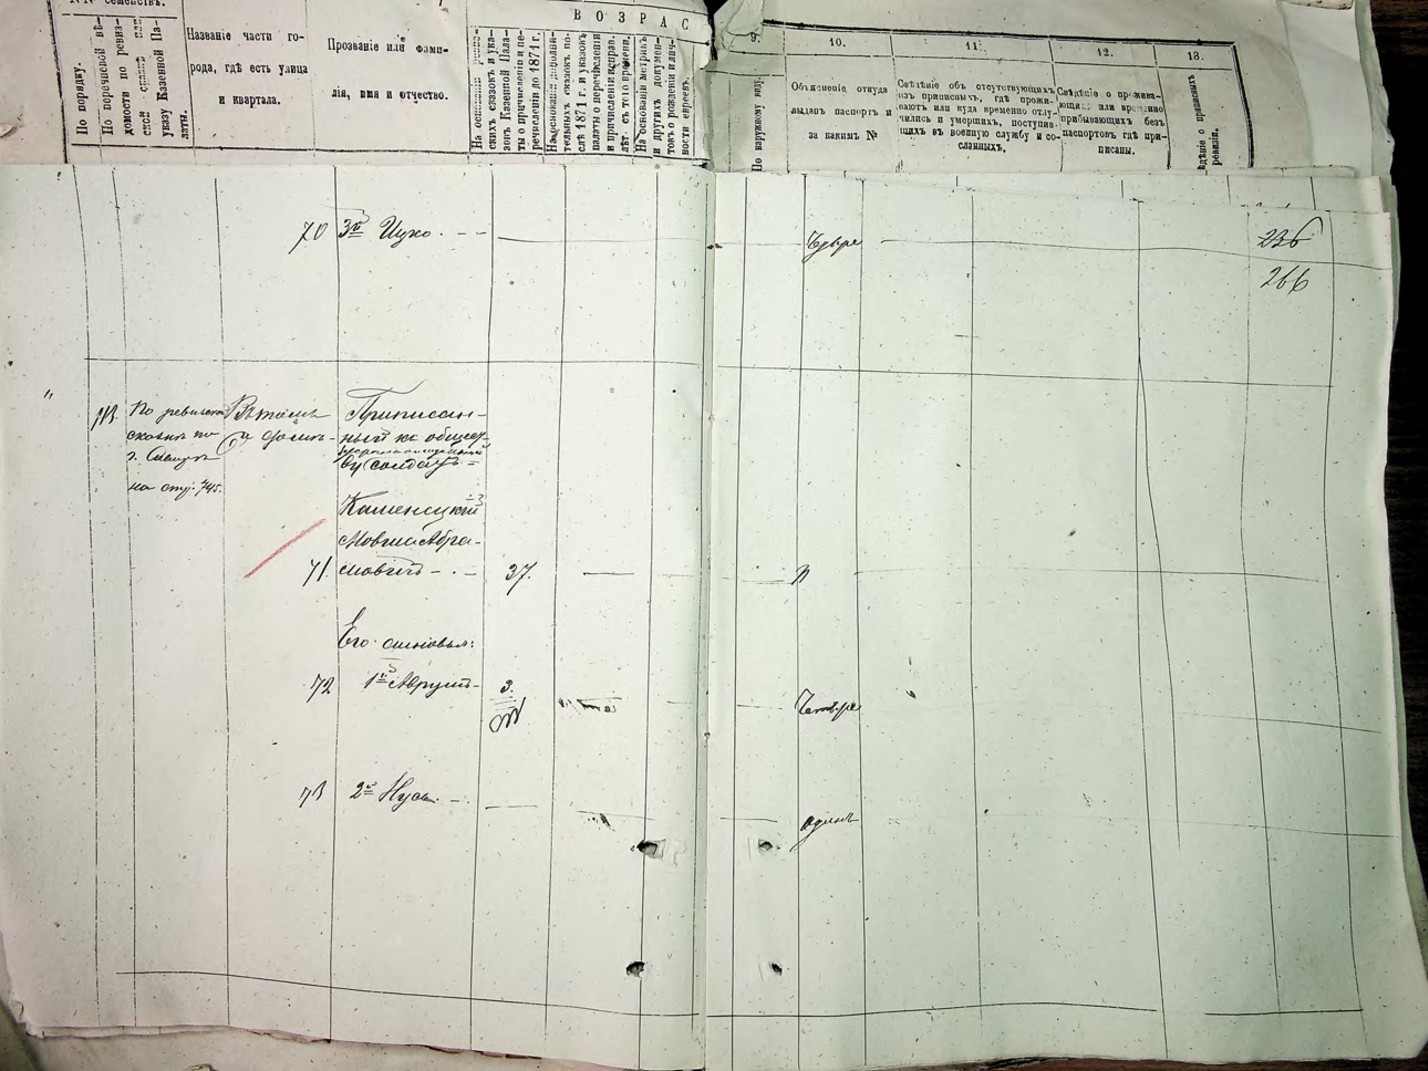 ВОЗРАС
По порядку.
По перечневой вѣ-
домости по ревиз-
ской
указу Казенной Па-
латы.
Названіе части го-
рода, гдѣ есть улица
и квартала.
Прозваніе или фами-
лія, имя и отчество.
На основаніи
скихъ сказокъ и ука-
зовъ Казенной Пала-
ты о причисленіи и пе-
речисленіи до 1871 г.
На основаніи дополни-
тельныхъ сказокъ по-
слѣ 1871 г. и указовъ
палаты о перечисленіи
и причисленіи исправ.
лѣт. съ того времени.
На основаніи метрикъ
и другихъ докумен-
товъ о рожденіи и лич-
ности евреевъ.
9.
По наружному виду.
10.
Объясненіе, откуда
выданъ паспортъ и
за какимъ №
11.
Свѣдѣніе объ отсутствующихъ
изъ приписныхъ, гдѣ прожи-
ваютъ или куда временно отлу-
чились и умершихъ, поступив-
щихъ въ военную службу и со-
сланныхъ.
12.
Свѣдѣніе о прожива-
ющихъ или временно
прибывающихъ безъ
паспортовъ гдѣ при-
писаны.
13.
о приписныхъ
ревизіи.
70 3й Ицко
236
266
По ревизской
сказкѣ по
на стр. 745.
Приписан-
ный къ
Каменецкій
Мовша Абра-
71. мовичъ 37.
Его сыновья:
72 1й 3.
Четыре
73 2й Нусь
одинъ